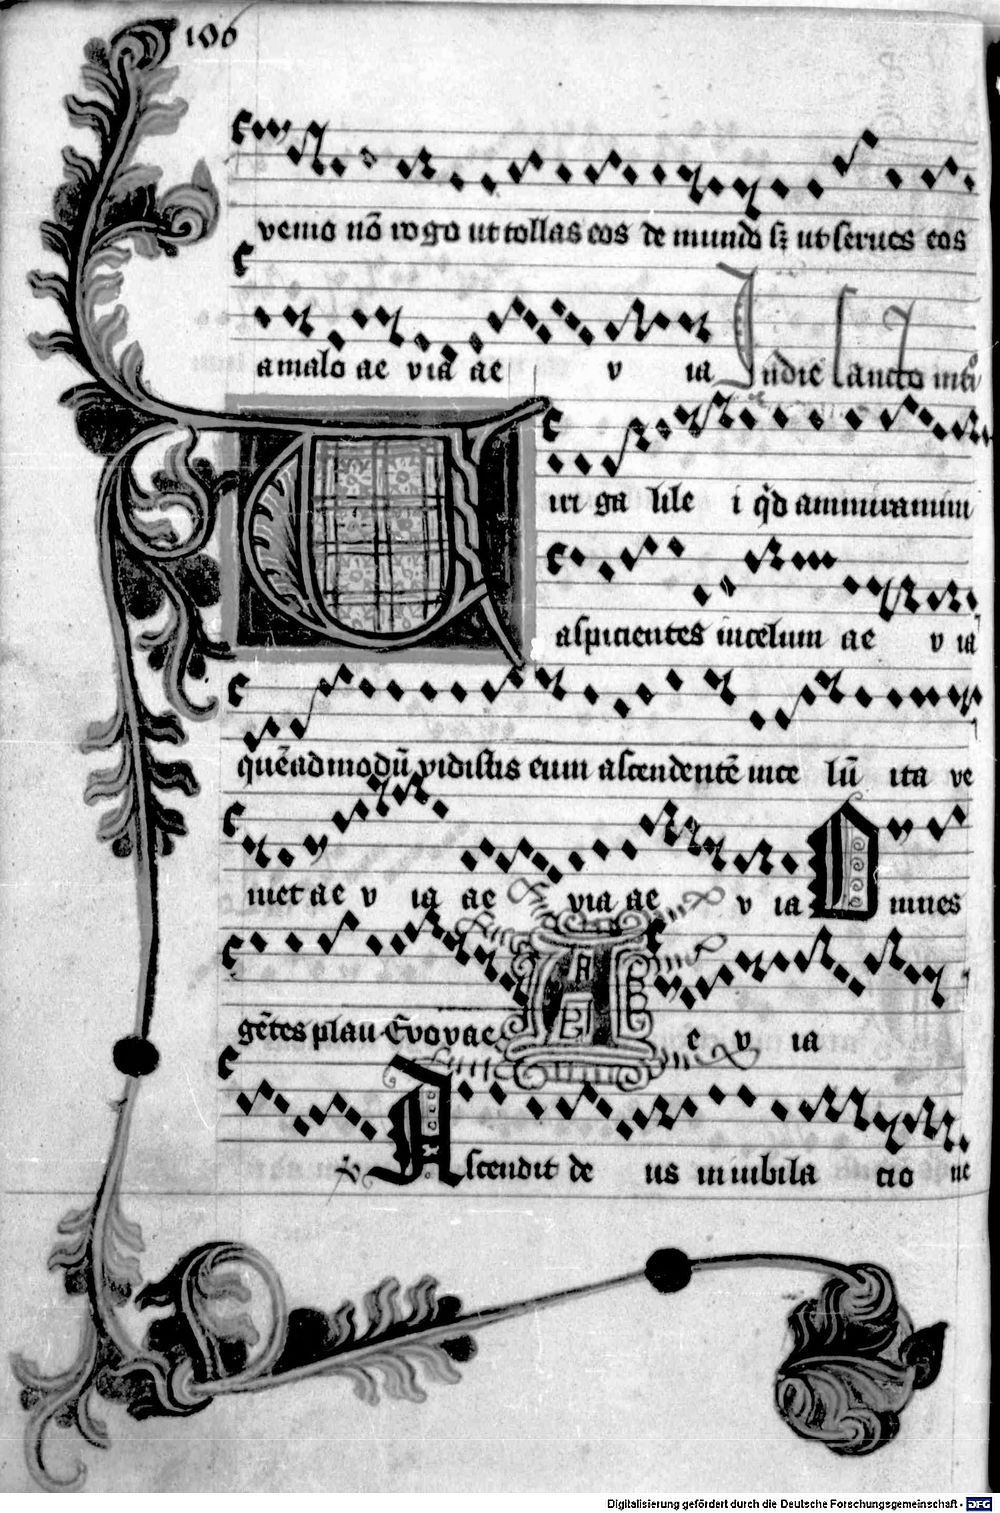 106
venio nō rogo ut tollas eos de mundo sꝫ ut serues eos
amalo ae via ae v ia Indie sancto
V iri ga lile i qd ammiramini
aspicientes incelum ae v ia
quēadmodū vidistis eum ascendentē ince lū ita ve
niet ae v ia ae via ae v ia Omnes
gētes plau Evovae A e v ia
Ascendit de us iniubila cio ne
Digitalisierung gefördert durch die Deutsche Forschungsgemeinschaft - DFG